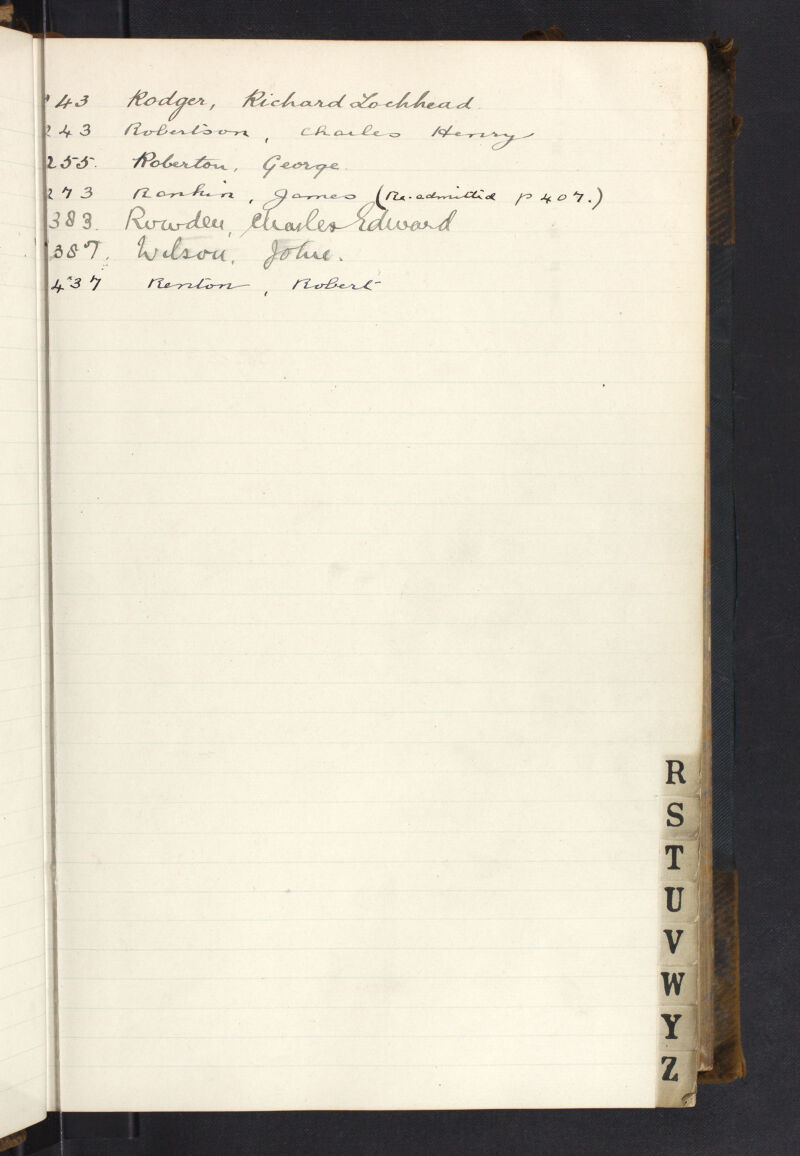 43 Rodger, Richard Lochhead.
243 Robertson, Charles Henry
255. Roberton, George.
273 Rankin, James (Re-admitted P 407.)
383. Rowden, Charles Edward
387. Wilson, John.
437 Renton, Robert
R
S
T
U
V
W
Y
Z